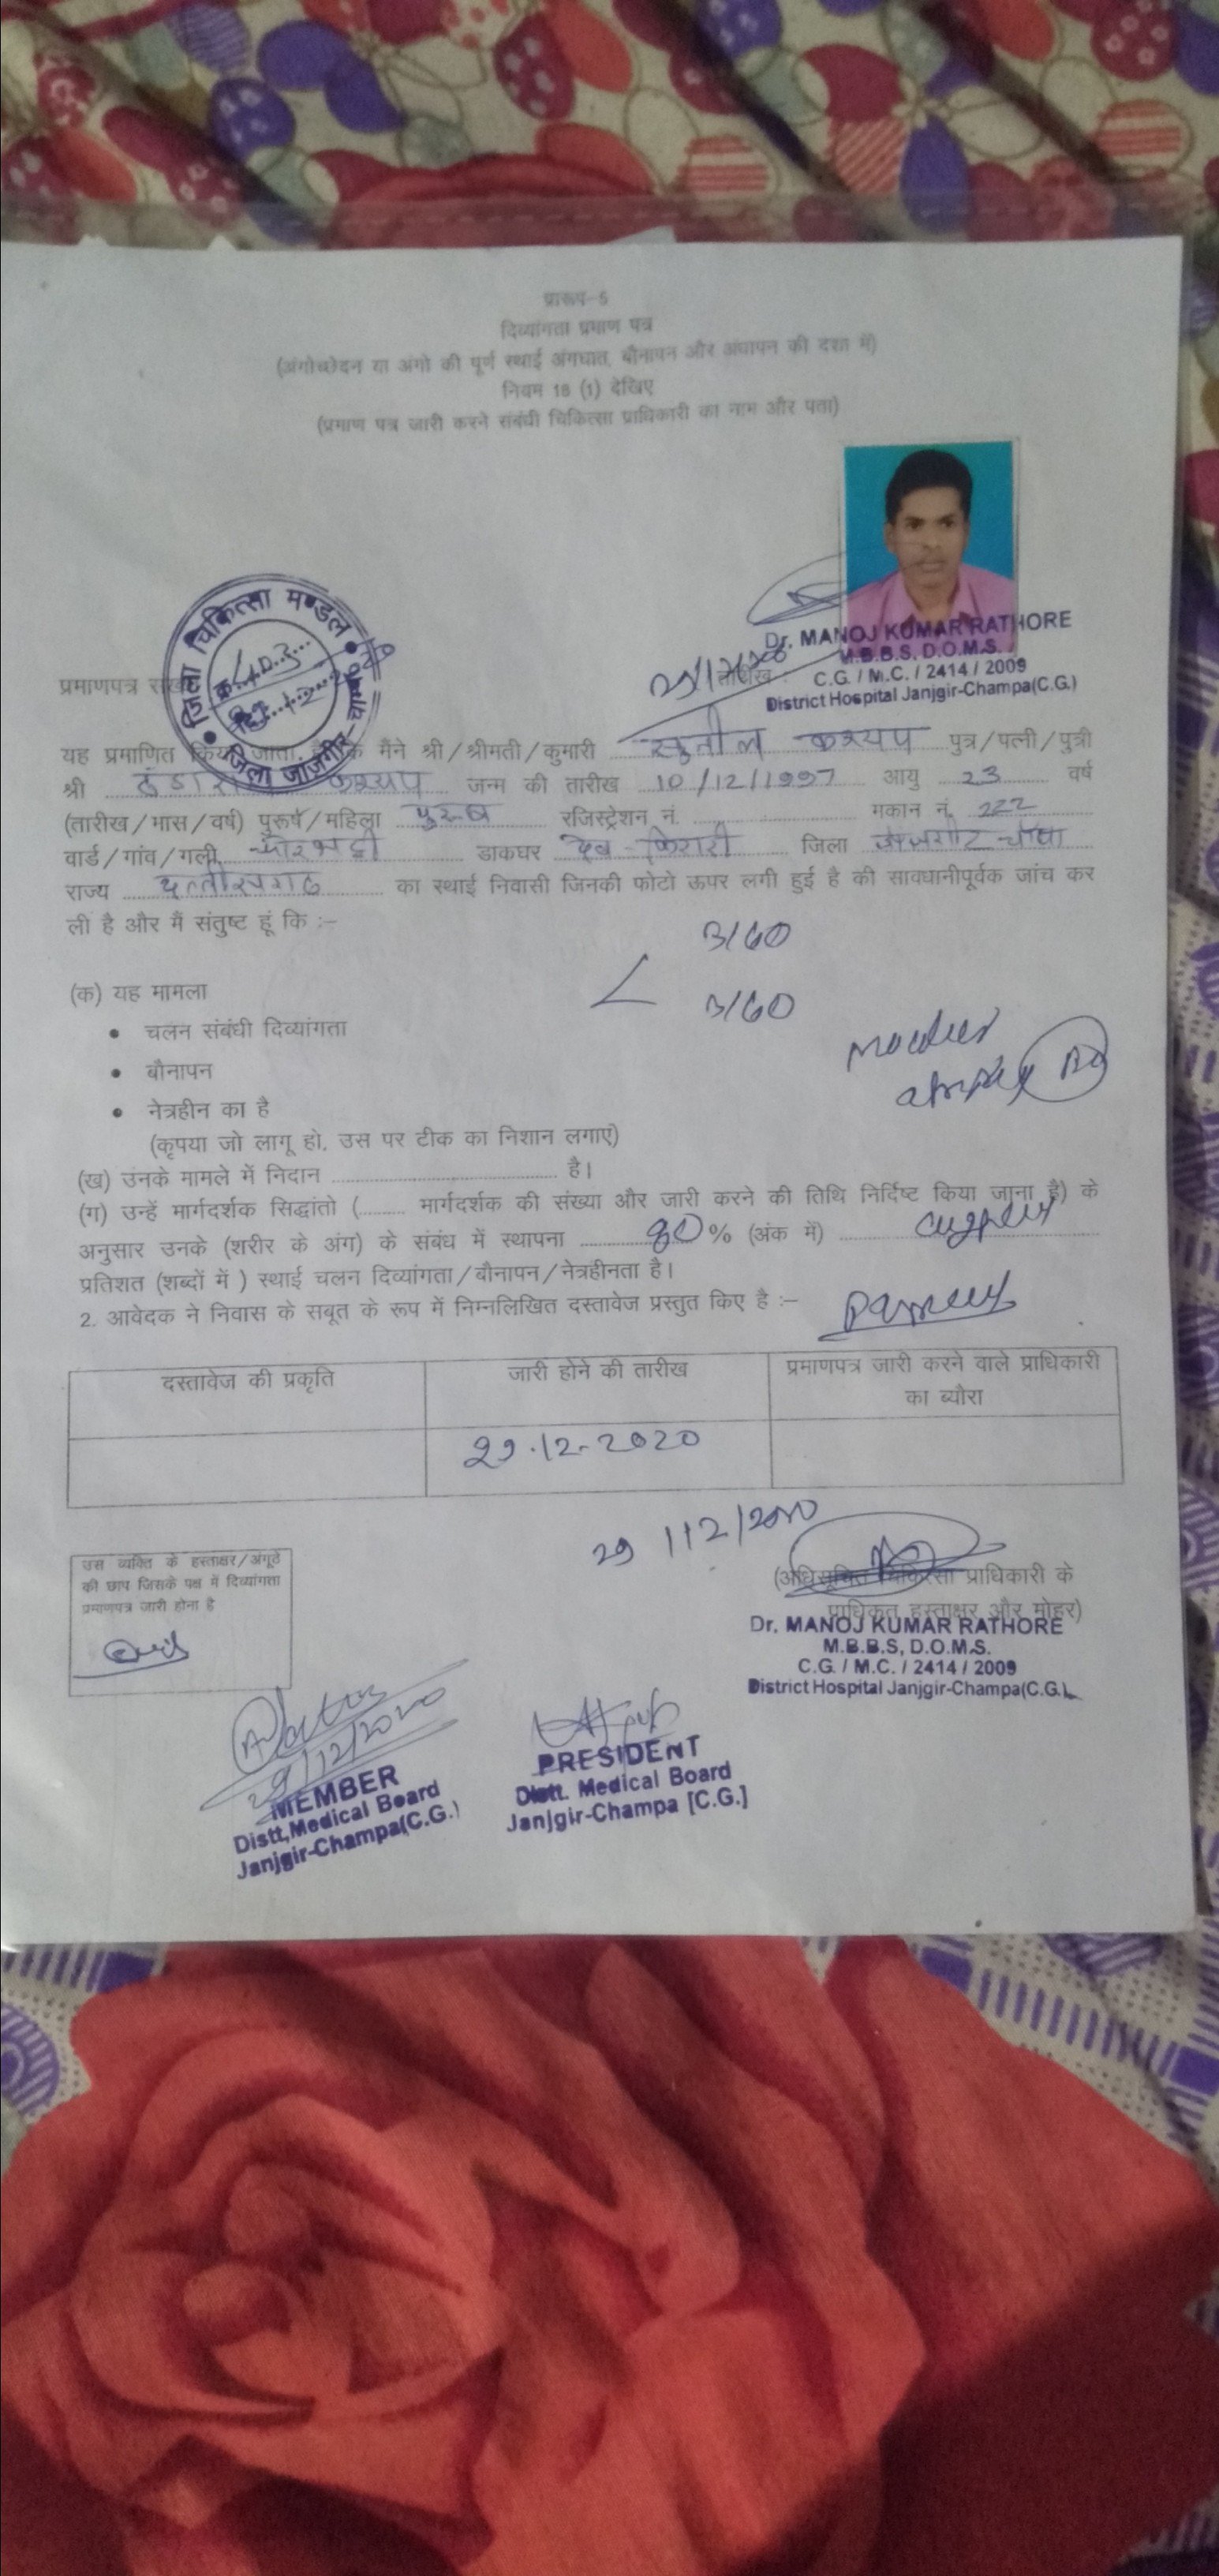 प्रारूप-5
दिव्यांगता प्रमाण पत्र
(अंगोच्छेदन या अंगो की पूर्ण स्थाई अंगघात, बौनापन और अंधापन की दशा में)
नियम 18 (1) देखिए
(प्रमाण पत्र जारी करने संबंधी चिकित्सा प्राधिकारी का नाम और पता)
जिला चिकित्सा मण्डल
जिला जांजगीर-चाम्पा
Dr. MANOJ KUMAR RATHORE
M.B.B.S, D.O.M.S.
C.G. / M.C. / 2414 / 2009
District Hospital Janjgir-Champa(C.G.)
प्रमाणपत्र तारीख
यह प्रमाणित किया जाता मैंने श्री/श्रीमती/कुमारी कश्यप पुत्र/पत्नी/पुत्री
श्री कश्यप जन्म की तारीख 10/12/1997 आयु 23 वर्ष
(तारीख/मास/वर्ष) पुरूष/महिला पुरूष रजिस्ट्रेशन नं. मकान नं. 222
वार्ड/गांव/गली डाकघर देव किरारी जिला जांजगीर-चांपा
राज्य छत्तीसगढ़ का स्थाई निवासी जिनकी फोटो ऊपर लगी हुई है की सावधानीपूर्वक जांच कर
ली है और मैं संतुष्ट हूं कि :-
3/60
3/60
(क) यह मामला
• चलन संबंधी दिव्यांगता
• बौनापन
• नेत्रहीन का है
(कृपया जो लागू हो, उस पर टीक का निशान लगाएं)
(ख) उनके मामले में निदान है।
(ग) उन्हें मार्गदर्शक सिद्धांतो (........ मार्गदर्शक की संख्या और जारी करने की तिथि निर्दिष्ट किया जाना है) के
अनुसार उनके (शरीर के अंग) के संबंध में स्थापना % (अंक में)
प्रतिशत (शब्दों में ) स्थाई चलन दिव्यांगता/बौनापन/नेत्रहीनता है।
2. आवेदक ने निवास के सबूत के रूप में निम्नलिखित दस्तावेज प्रस्तुत किए है :-
दस्तावेज की प्रकृति जारी होने की तारीख प्रमाणपत्र जारी करने वाले प्राधिकारी
का ब्यौरा
29.12.2020
29/12/2020
उस व्यक्ति के हस्ताक्षर/अंगूठे
की छाप जिसके पक्ष में दिव्यांगता
प्रमाणपत्र जारी होना है
(अधिसूचित चिकित्सा प्राधिकारी के
प्राधिकृत हस्ताक्षर और मोहर)
Dr. MANOJ KUMAR RATHORE
M.B.B.S, D.O.M.S.
C.G. / M.C. / 2414 / 2009
District Hospital Janjgir-Champa(C.G.)
29/12/2020
MEMBER
Distt,Medical Board
Janjgir-Champa(C.G.)
PRESIDENT
Distt. Medical Board
Janjgir-Champa [C.G.]